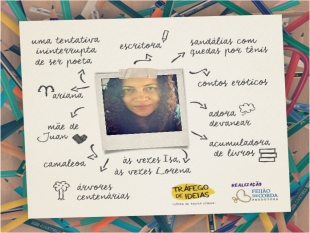 uma tentativa
ininterrupta
de ser poeta
escritora
sandálias com
quedas por tênis
contos eróticos
ariana
adora
devanear
mãe de
Juan
acumuladora
de livros
camaleoa
às vezes Isa,
às vezes Lorena
árvores
centenárias
TRÁFEGO
DE IDEIAS
REALIZAÇÃO
FEIJÃO
DE CORDA
PRODUTORA